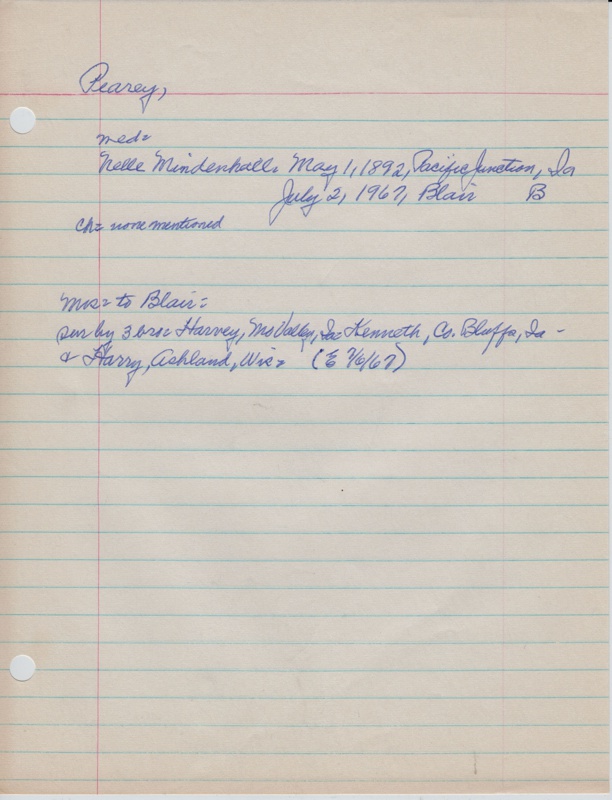 Pearey,
med=
Nelle Mindenhall= May 1, 1892, Pacific Junction, Ia
July 2, 1967, Blair B
ch= none mentioned
mvs= to Blair=
sur by 3 bros= Harvey, Mo Valley, Ia= Kenneth, Co. Bluffs, Ia -
& Harry, Ashland, Wis= (E 7/6/67)